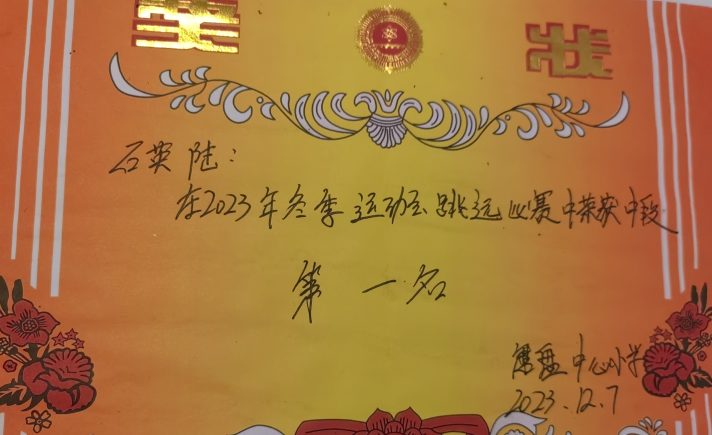 奖 状
石英陆：
在2023年冬季运动会跳远比赛中荣获中段
第一名
中心小学
2023.12.7